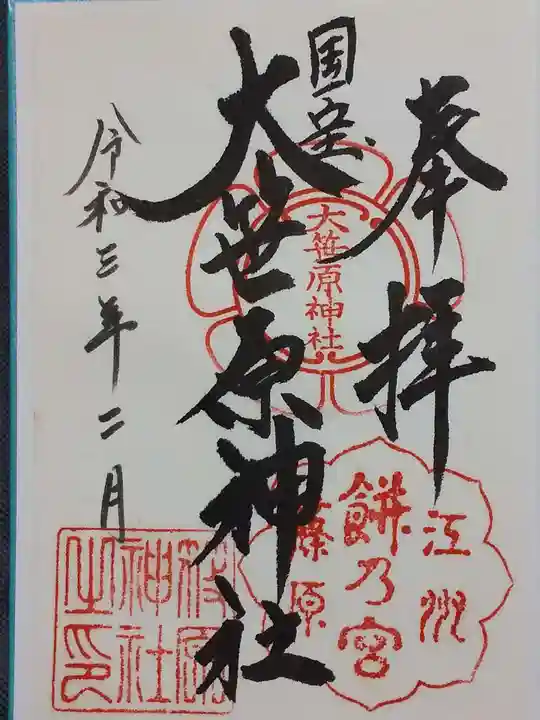 奉拝
国宝
大笹原神社
令和三年二月
大笹原神社
江州
餅乃宮
篠原
神社
之印